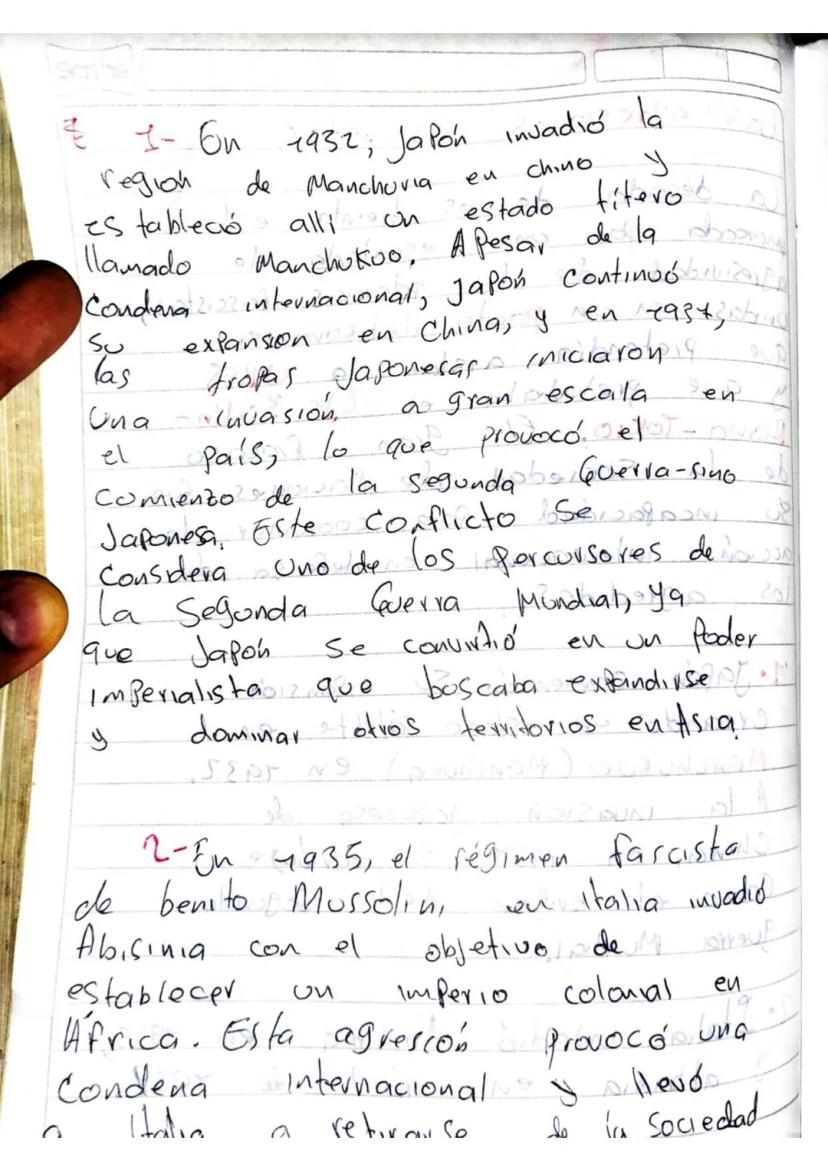 Scribe
1- En 1932, Japón invadió la
región de Manchuria en chino y
estableció allí un estado títero
llamado Manchukuo. A Pesar de la
Condena internacional, Japón continuó
su expansion en China, y en 1937,
las tropas Japonesas iniciaron
una invasión a gran escala en
el país, lo que provocó el
comienzo de la segunda Guerra-sino
Japonesa. Este Conflicto Se
Considera uno de los percursores de
la Segunda Guerra Mundial, ya
que Japón se convirtió en un Poder
imperialista que buscaba expandirse
y dominar otros territorios en Asia.
2- En 1935, el régimen fascista
de benito Mussolin, en italia invadió
Abisinia con el objetivo de
establecer un imperio colonial en
África. Esta agresión provocó una
Condena internacional y llevó
a Italia a retirarse de la Sociedad